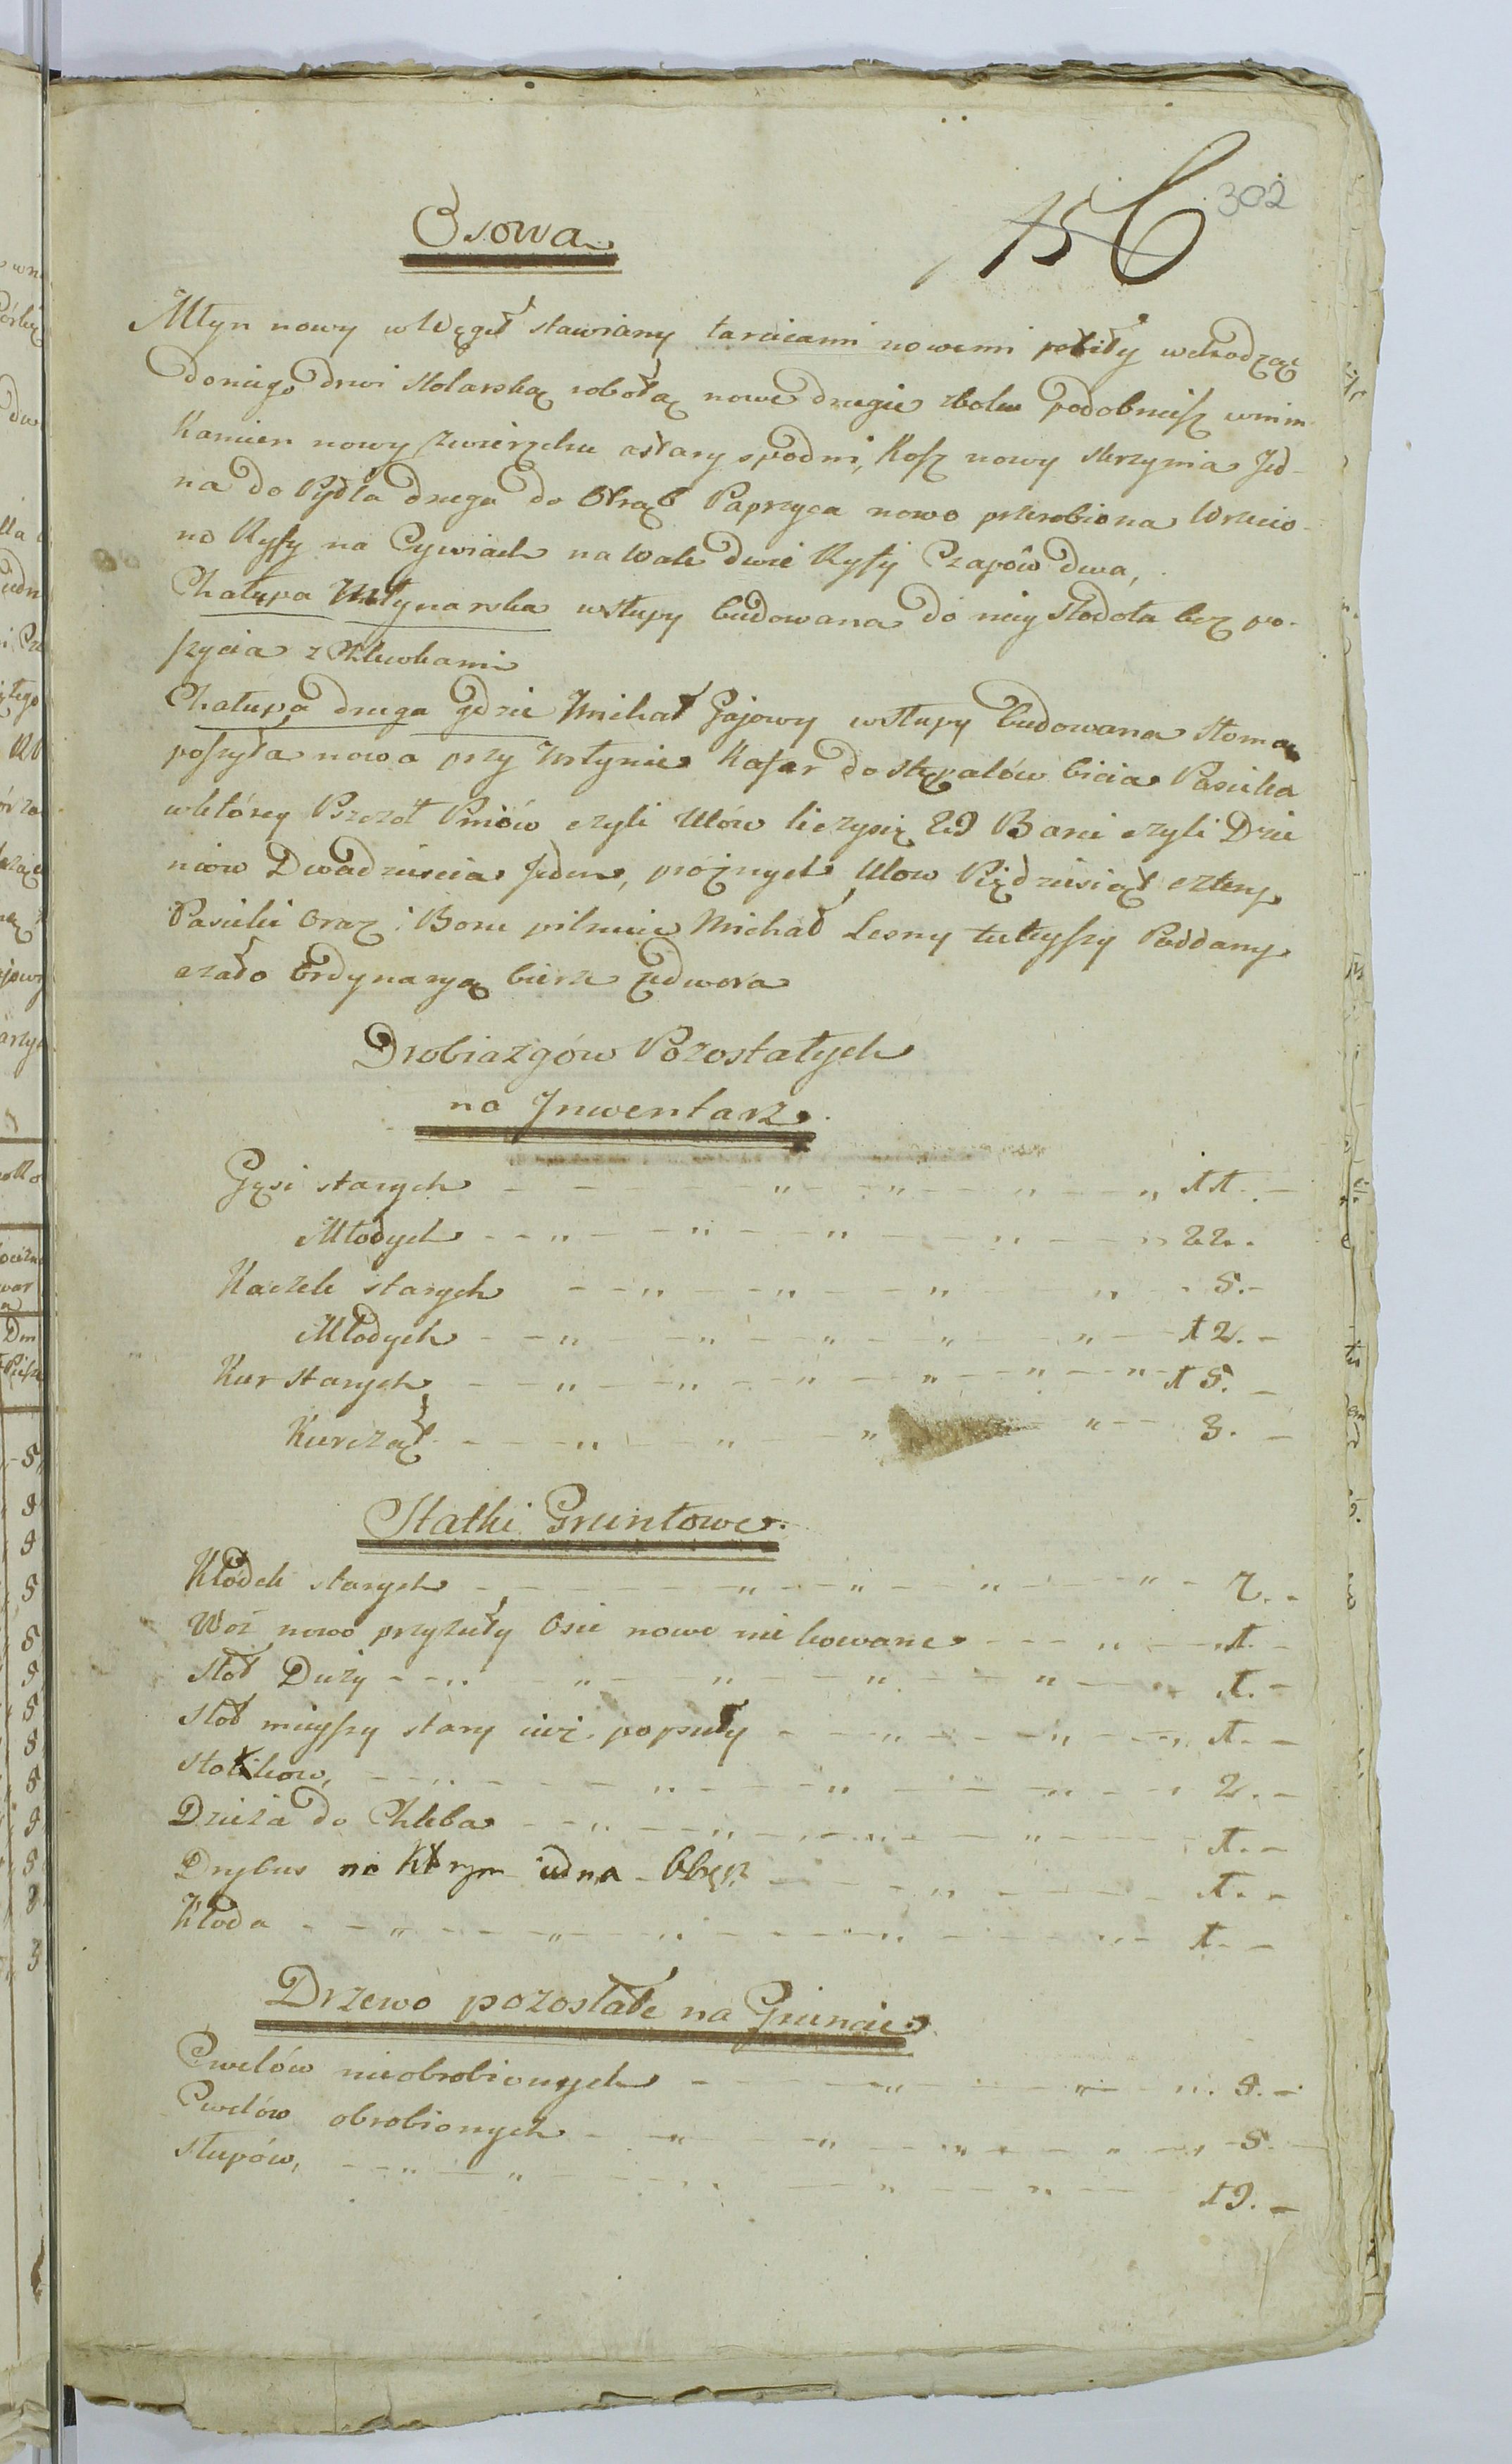 Osowa
156
302
Młyn nowy w Węgeł stawiany tarcicami nowemi pobity wchodząc
doniego drwi stolarską robotą nowe drugie zboku podobnież wnim
Kamien nowy zwierzchu astary spodni, Kosz nowy skrzynia Jed-
na do Pydla druga do Otrąb Paprzyca nowo przerobiona Wrzecio-
no Ryfy na Cywiach na Wale dwie Ryfy Czapów dwa,
Chałupa Młynarska wsłupy budowana do niey Stodoła bez po-
szycia z Chlewkami
Chałupa druga gdzie Michał Gajowy wsłupy budowana słomą
poszyta nowa przy Młynie Kafar do stępalów bicia Pasieka
wktórey Pszczół Pniów czyli Ulów liczysię 29 Bani czyli Dzie
niów Dwadziescia Jeden, próżnych Ulow Piędziesiąt cztery
Pasieki Oraz i Boru pilnuie Michał Lesny tuteyszy Poddany
azato Ordynaryą bierze zedwora
Drobiazgów Pozostałych
na Jnwentarz
Gęsi starych - - - „ - „ - „ - „ 11. -
Młodych - - „ - „ - „ - „ - „ 22. -
Kaczek starych - - „ - „ - „ - „ - 5. -
Młodych - - „ - „ - „ - „ - „ - 12. -
Kur starych - - „ - „ - „ - „ - „ - „ - 15. -
Kurcząt - - - „ - „ - „ - „ - - 3. -
Statki Gruntowe.
Kłódek starych - - - - „ - „ - „ - „ - 2. -
Wóz nowo przyżuty Osie nowe nie kowane - - - „ - - „ 1. -
Stół Duży - - „ - „ - „ - „ - „ - „ 1. -
Stół mieyszy stary iuż popsuty - - „ - - „ - „ 1. -
Stołkow, - - „ - - „ - „ - „ - „ 2. -
Dzieża do Chleba - - „ - „ - „ - „ - 1. -
Drybus na Którym iedna Obręcz - - - „ - - - 1. -
Kłoda - - „ - - „ - „ - - „ - - „ - 1. -
Drzewo pozostałe na Gruncie
Cwelów nieobrobionych - - - „ - - „ - „ 8. -
Cwelów obrobionych - „ - „ - „ - „ - „ - 5. -
Słupów, - - „ - „ - - „ - „ - „ - 19. -